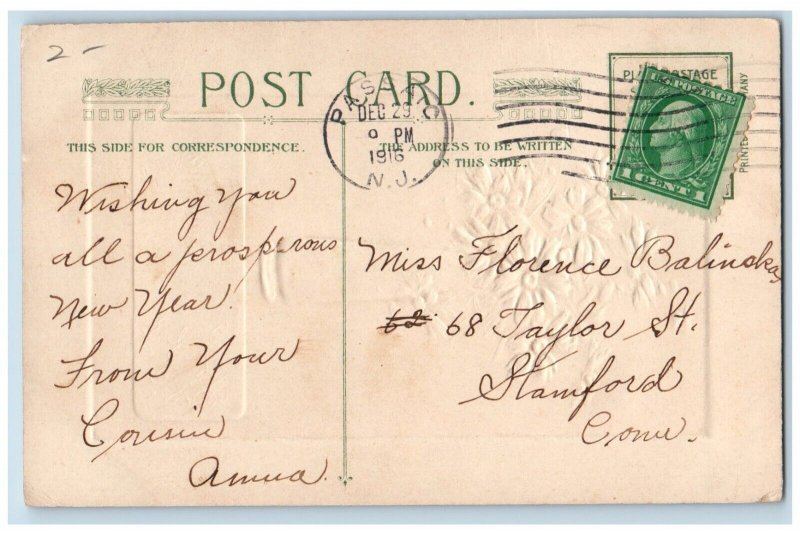 2-
POST CARD.
THIS SIDE FOR CORRESPONDENCE.
THE ADDRESS TO BE WRITTEN
ON THIS SIDE.
PASSAIC
DEC 29
9 PM
1916
N.J.
POSTAGE
U.S. POSTAGE
1 CENT 1
PRINTED
Wishing You
all a prosperous
New Year.
From Your
Cousin
Anna.
Miss Florence Balinska,
62 68 Taylor St.
Stamford
Conn.